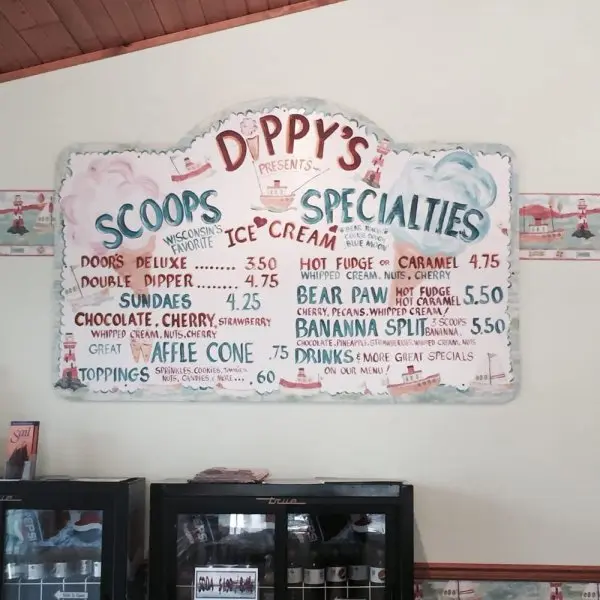 DIPPY'S
PRESENTS
SCOOPS
WISCONSIN'S
FAVORITE
ICE CREAM
DOOR'S DELUXE ........ 3.50
DOUBLE DIPPER ....... 4.75
SUNDAES 4.25
CHOCOLATE, CHERRY, STRAWBERRY
WHIPPED CREAM, NUTS, CHERRY
GREAT WAFFLE CONE .75
TOPPINGS SPRINKLES, COOKIES,
NUTS, CANDIES, & MORE... .60
SPECIALTIES
BLUE MOON
HOT FUDGE OR CARAMEL 4.75
WHIPPED CREAM, NUTS, CHERRY
BEAR PAW HOT FUDGE
HOT CARAMEL 5.50
CHERRY, PECANS, WHIPPED CREAM!
BANANNA SPLIT 3 SCOOPS
BANANNA, 5.50
CHOCOLATE, PINEAPPLE, STRAWBERRIES, WHIPPED CREAM, NUTS
DRINKS & MORE GREAT SPECIALS
ON OUR MENU!
Sail
True